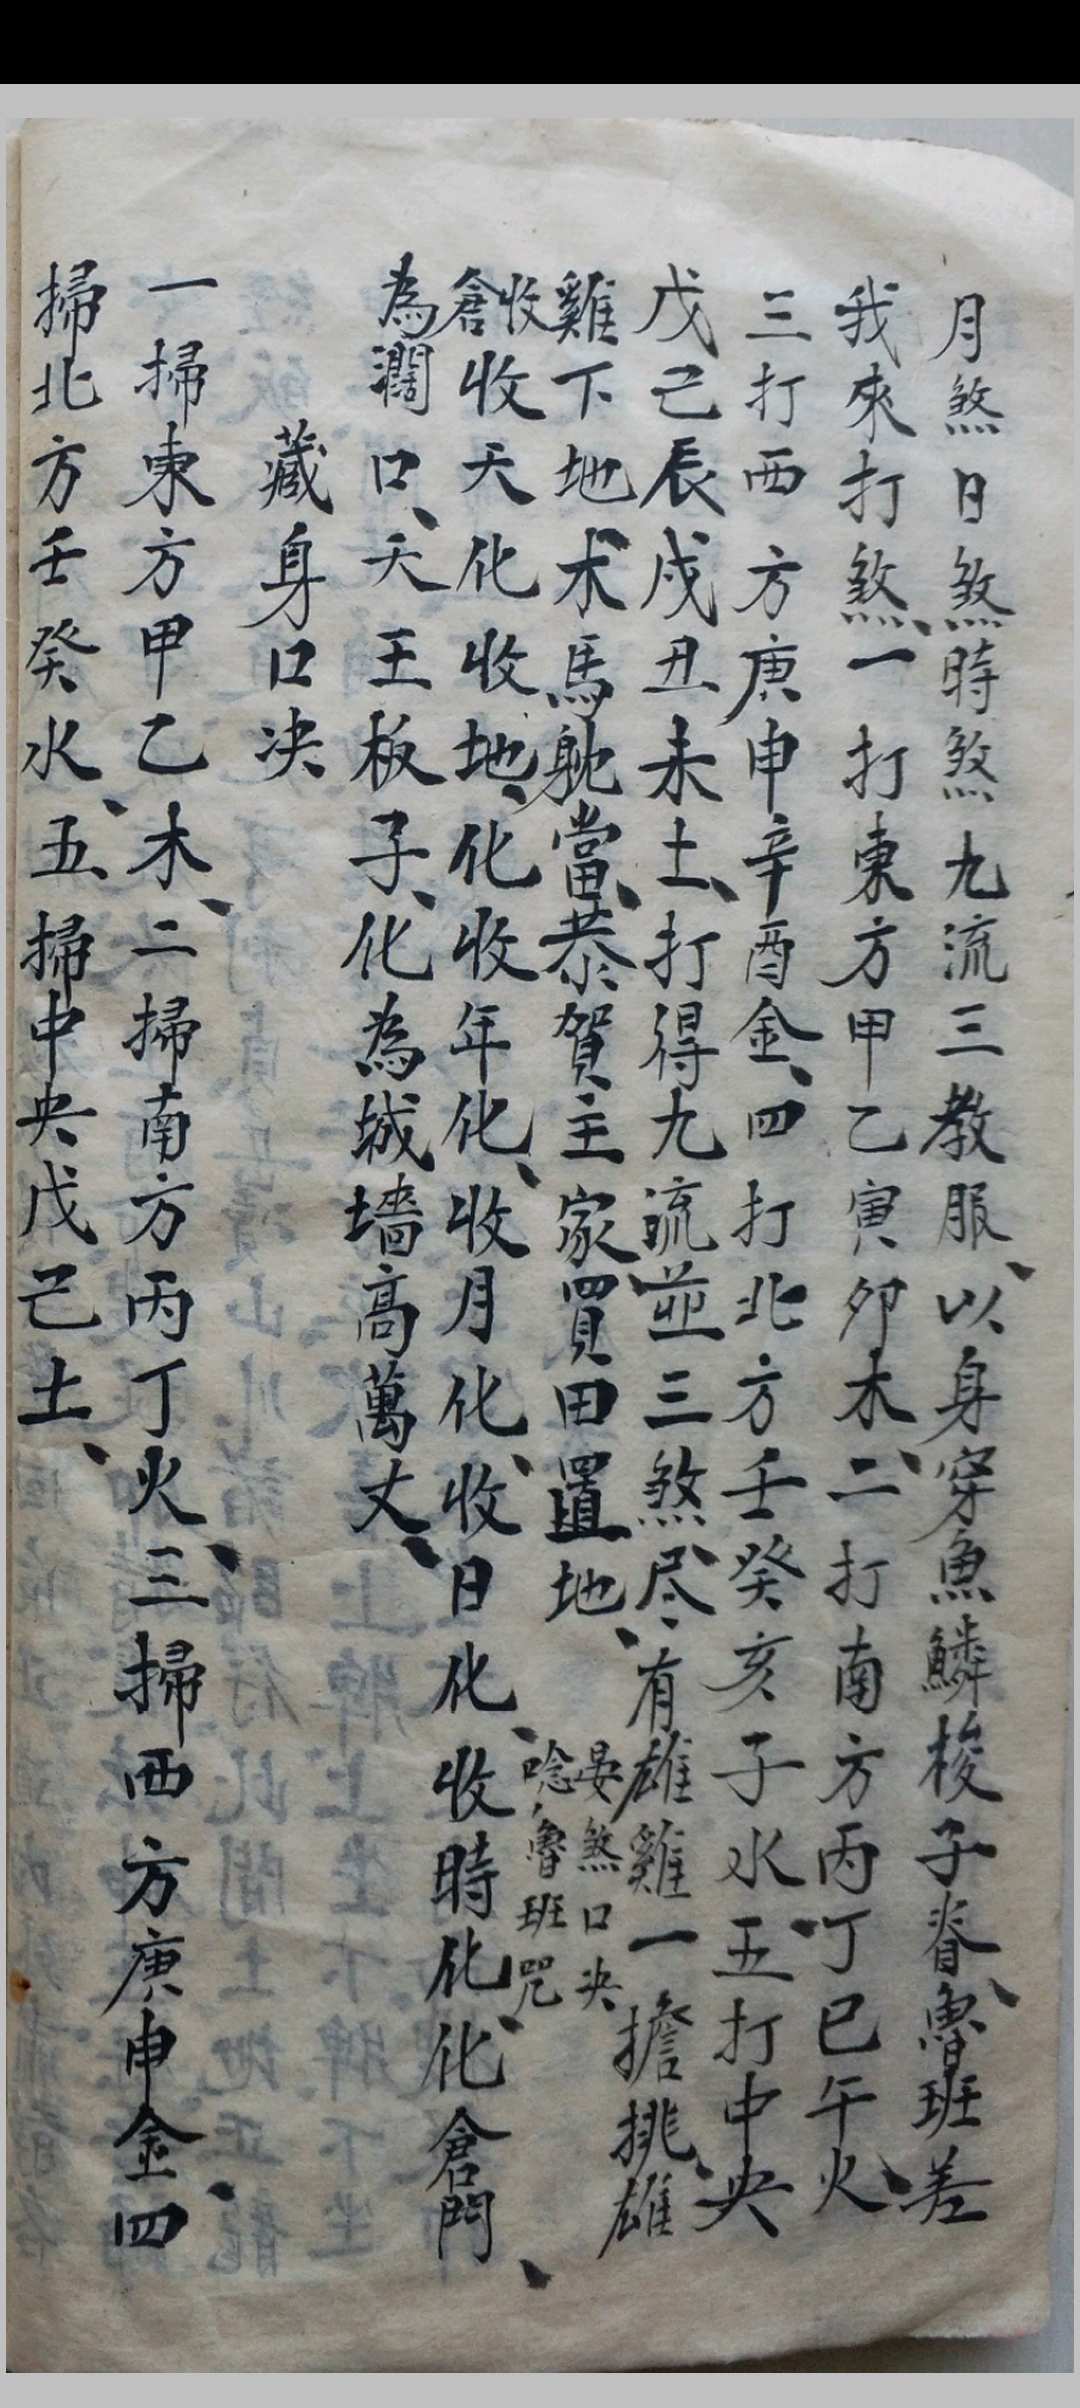 月煞日煞時煞九流三教服、以身穿魚鱗梭子脊、魯班差
我來打煞、一打東方甲乙寅卯木、二打南方丙丁巳午火、
三打西方庚申辛酉金、四打北方壬癸亥子水、五打中央
戊己辰戌丑未土、打得九流並三煞尽、有雄雞一擔挑、雄
雞下地、木馬躭當、恭賀主家買田置地、
晏煞口央
唸魯班咒
收倉收天化收地、化收年化、收月化、收日化、收時化、化倉門、
為濶口、天王板子、化為城墻高萬丈、
藏身口决
一掃東方甲乙木、二掃南方丙丁火、三掃西方庚申金、四
掃北方壬癸水、五掃中央戊己土、